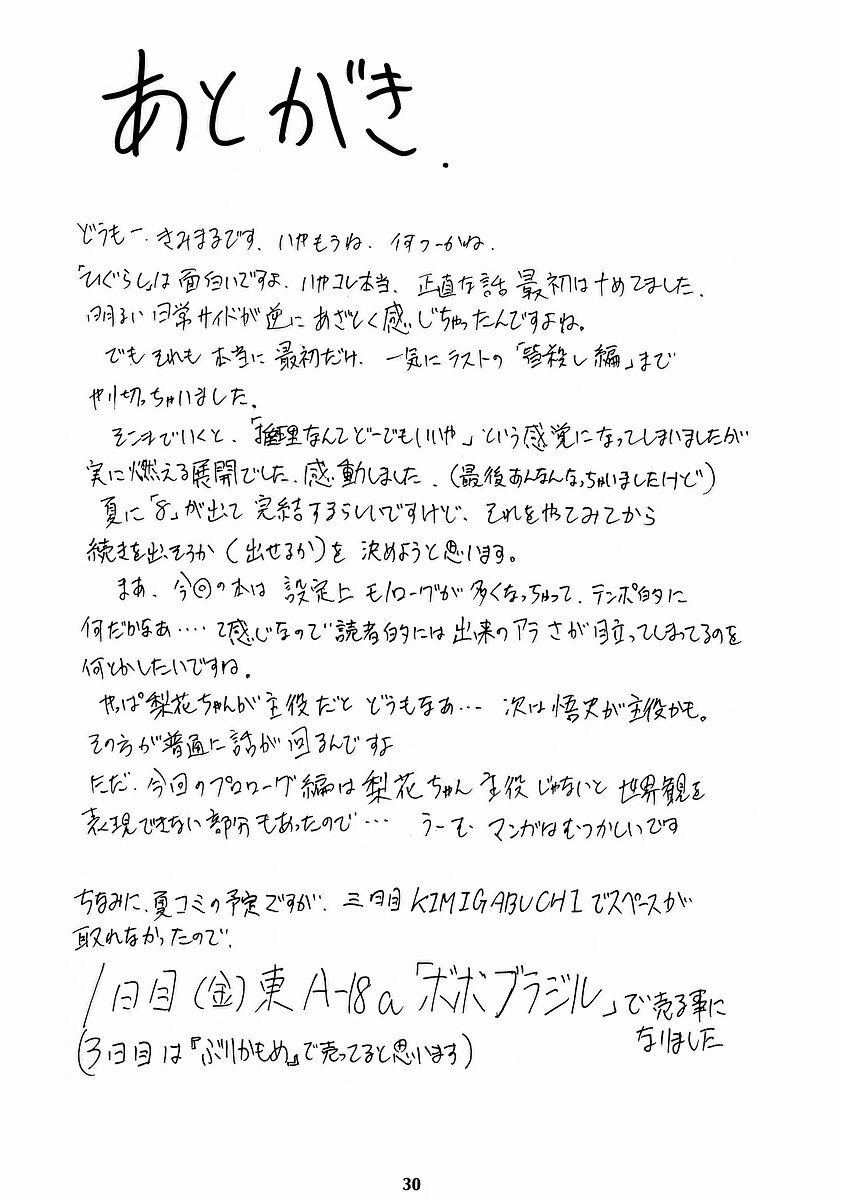 あとがき.
どうもー、きみまるです、いやもうね、何つーかね、
「ひぐらし」は面白いですよ、いやコレ本当、正直な話最初はナメてました、
明るい日常サイドが逆にあざとく感じちゃったんですよね。
でもそれも本当に最初だけ、一気にラストの「皆殺し編」まで
やり切っちゃいました。
そこまでいくと、「推理なんてどーでもいいや」という感覚になってしまいましたが
実に燃える展開でした、感動しました、(最後あんなんなっちゃいましたけど)
夏に「8」が出て完結するらしいですけど、それをやってみてから
続きを出そうか(出せるか)を決めようと思います。
まあ、今回の本は設定上モノローグが多くなっちゃって、テンポ的に
何だかなあ‥‥て感じなので読者的には出来のアラさが目立ってしまってるのを
何とかしたいですね。
やっぱ梨花ちゃんが主役だとどうもなあ…次は悟史が主役かも。
その方が普通に話が回るんですよ
ただ、今回のプロローグ編は梨花ちゃん主役じゃないと世界観を
表現できない部分もあったので…うーむ マンガはむつかしいです
ちなみに、夏コミの予定ですが、三日目KIMIGABUCHIでスペースが
取れなかったので、
1日目(金)東A-18a「ボボブラジル」で売る事に
なりました
(3日目は『ぶりかもめ』で売ってると思います)
30